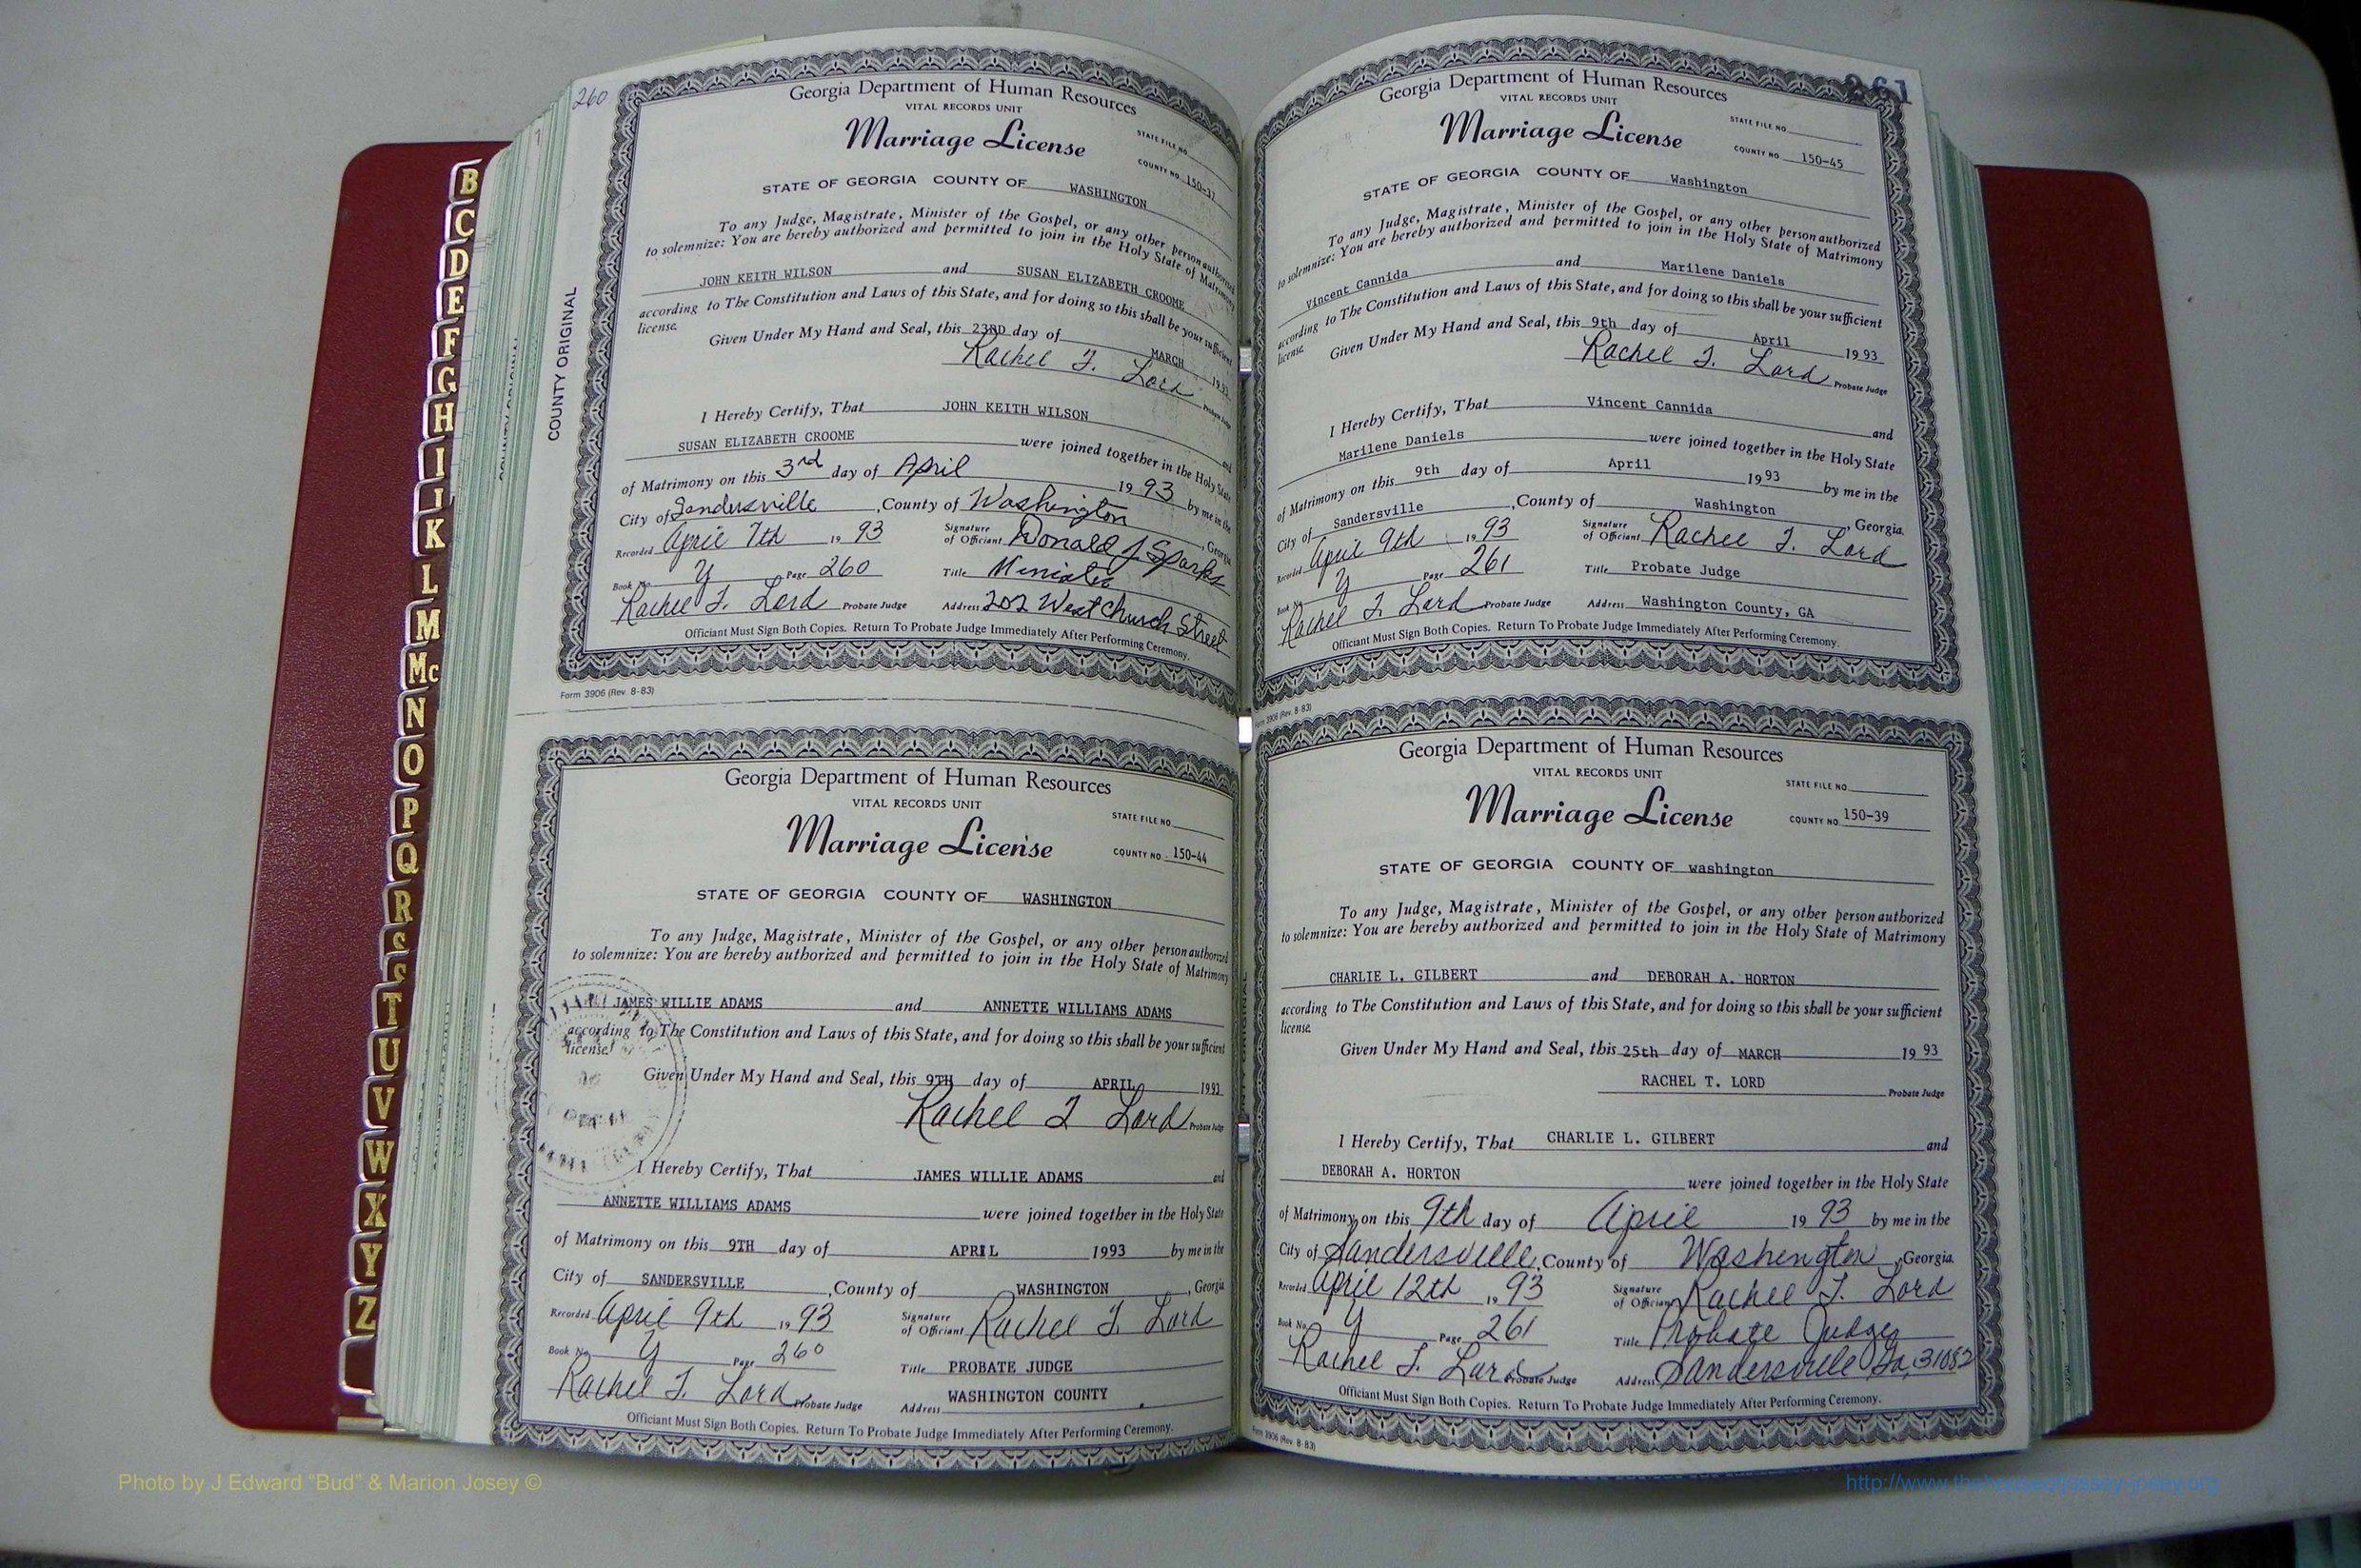 260
Georgia Department of Human Resources
VITAL RECORDS UNIT
Marriage License
STATE FILE NO.
COUNTY NO. 150-37
STATE OF GEORGIA COUNTY OF WASHINGTON
To any Judge, Magistrate, Minister of the Gospel, or any other person authorized
to solemnize: You are hereby authorized and permitted to join in the Holy State of Matrimony
JOHN KEITH WILSON and SUSAN ELIZABETH CROOME
according to The Constitution and Laws of this State, and for doing so this shall be your sufficient
license.
Given Under My Hand and Seal, this 23RD day of MARCH 1993
Rachel T. Lord Probate Judge
I Hereby Certify, That JOHN KEITH WILSON and
SUSAN ELIZABETH CROOME were joined together in the Holy State
of Matrimony on this 3rd day of April 1993 by me in the
City of Sandersville, County of Washington, Georgia
Recorded April 7th 1993 Signature of Officiant Donald J. Sparks
Book No. Y Page 260 Title Minister
Rachel T. Lord Probate Judge Address 202 West Church Street
Officiant Must Sign Both Copies. Return To Probate Judge Immediately After Performing Ceremony.
Form 3906 (Rev. 8-83)
COUNTY ORIGINAL
Georgia Department of Human Resources
VITAL RECORDS UNIT
Marriage License
STATE FILE NO.
COUNTY NO. 150-44
STATE OF GEORGIA COUNTY OF WASHINGTON
To any Judge, Magistrate, Minister of the Gospel, or any other person authorized
to solemnize: You are hereby authorized and permitted to join in the Holy State of Matrimony
JAMES WILLIE ADAMS and ANNETTE WILLIAMS ADAMS
according to The Constitution and Laws of this State, and for doing so this shall be your sufficient
license.
Given Under My Hand and Seal, this 9TH day of APRIL 1993
Rachel T Lord Probate Judge
I Hereby Certify, That JAMES WILLIE ADAMS and
ANNETTE WILLIAMS ADAMS were joined together in the Holy State
of Matrimony on this 9TH day of APRIL 1993 by me in the
City of SANDERSVILLE, County of WASHINGTON, Georgia
Recorded April 9th 1993 Signature of Officiant Rachel T Lord
Book No. Y Page 260 Title PROBATE JUDGE
Rachel T. Lord Probate Judge Address WASHINGTON COUNTY
Officiant Must Sign Both Copies. Return To Probate Judge Immediately After Performing Ceremony.
261
Georgia Department of Human Resources
VITAL RECORDS UNIT
Marriage License
STATE FILE NO.
COUNTY NO. 150-45
STATE OF GEORGIA COUNTY OF Washington
To any Judge, Magistrate, Minister of the Gospel, or any other person authorized
to solemnize: You are hereby authorized and permitted to join in the Holy State of Matrimony
Vincent Cannida and Marilene Daniels
according to The Constitution and Laws of this State, and for doing so this shall be your sufficient
license.
Given Under My Hand and Seal, this 9th day of April 1993
Rachel T. Lord Probate Judge
I Hereby Certify, That Vincent Cannida and
Marilene Daniels were joined together in the Holy State
of Matrimony on this 9th day of April 1993 by me in the
City of Sandersville, County of Washington, Georgia.
Recorded April 9th 1993 Signature of Officiant Rachel T. Lord
Book No. Y Page 261 Title Probate Judge
Rachel T. Lord Probate Judge Address Washington County, GA
Officiant Must Sign Both Copies. Return To Probate Judge Immediately After Performing Ceremony.
Form 3906 (Rev. 8-83)
Georgia Department of Human Resources
VITAL RECORDS UNIT
Marriage License
STATE FILE NO.
COUNTY NO. 150-39
STATE OF GEORGIA COUNTY OF washington
To any Judge, Magistrate, Minister of the Gospel, or any other person authorized
to solemnize: You are hereby authorized and permitted to join in the Holy State of Matrimony
CHARLIE L. GILBERT and DEBORAH A. HORTON
according to The Constitution and Laws of this State, and for doing so this shall be your sufficient
license.
Given Under My Hand and Seal, this 25th day of MARCH 1993
RACHEL T. LORD
Probate Judge
I Hereby Certify, That CHARLIE L. GILBERT and
DEBORAH A. HORTON were joined together in the Holy State
of Matrimony on this 9th day of April 1993 by me in the
City of Sandersville, County of Washington, Georgia.
Recorded April 12th 1993 Signature of Officiant Rachel T. Lord
Book No. Y Page 261 Title Probate Judge
Rachel T. Lord Probate Judge Address Sandersville Ga. 31082
Officiant Must Sign Both Copies. Return To Probate Judge Immediately After Performing Ceremony.
Form 3906 (Rev. 8-83)
B
C
D
E
F
G
H
I
J
K
L
M
Mc
N
O
P
Q
R
S
S
T
U
V
W
X
Y
Z
Photo by J Edward "Bud" & Marion Josey ©
http://www.thehouseofjossey-josey.org